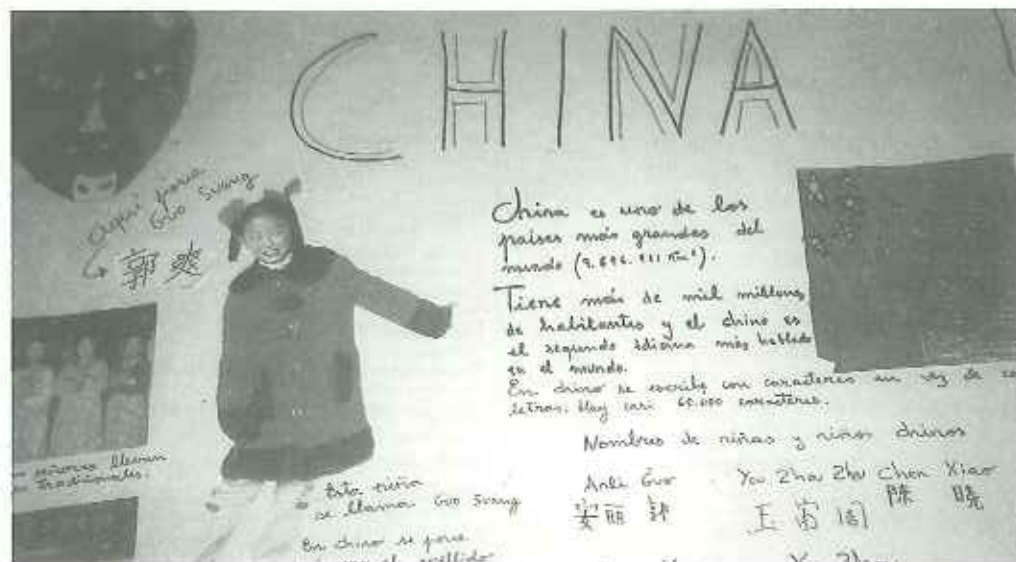 CHINA
Aquí pone
Guo Svang
郭 爽
China es uno de los
países más grandes del
mundo
Tiene más de mil millones
de habitantes y el chino es
el segundo idioma más hablado
en el mundo.
En chino se escribe con caracteres en vez de
letras. Hay casi 60.000 caracteres.
Nombres de niñas y niños chinos
Anli Guo
You Zha Zhu Chen Xiao
陳 曉
señoras llevan
tradicionales.
Esta niña
se llama Guo Svang
En chino se pone
el apellido